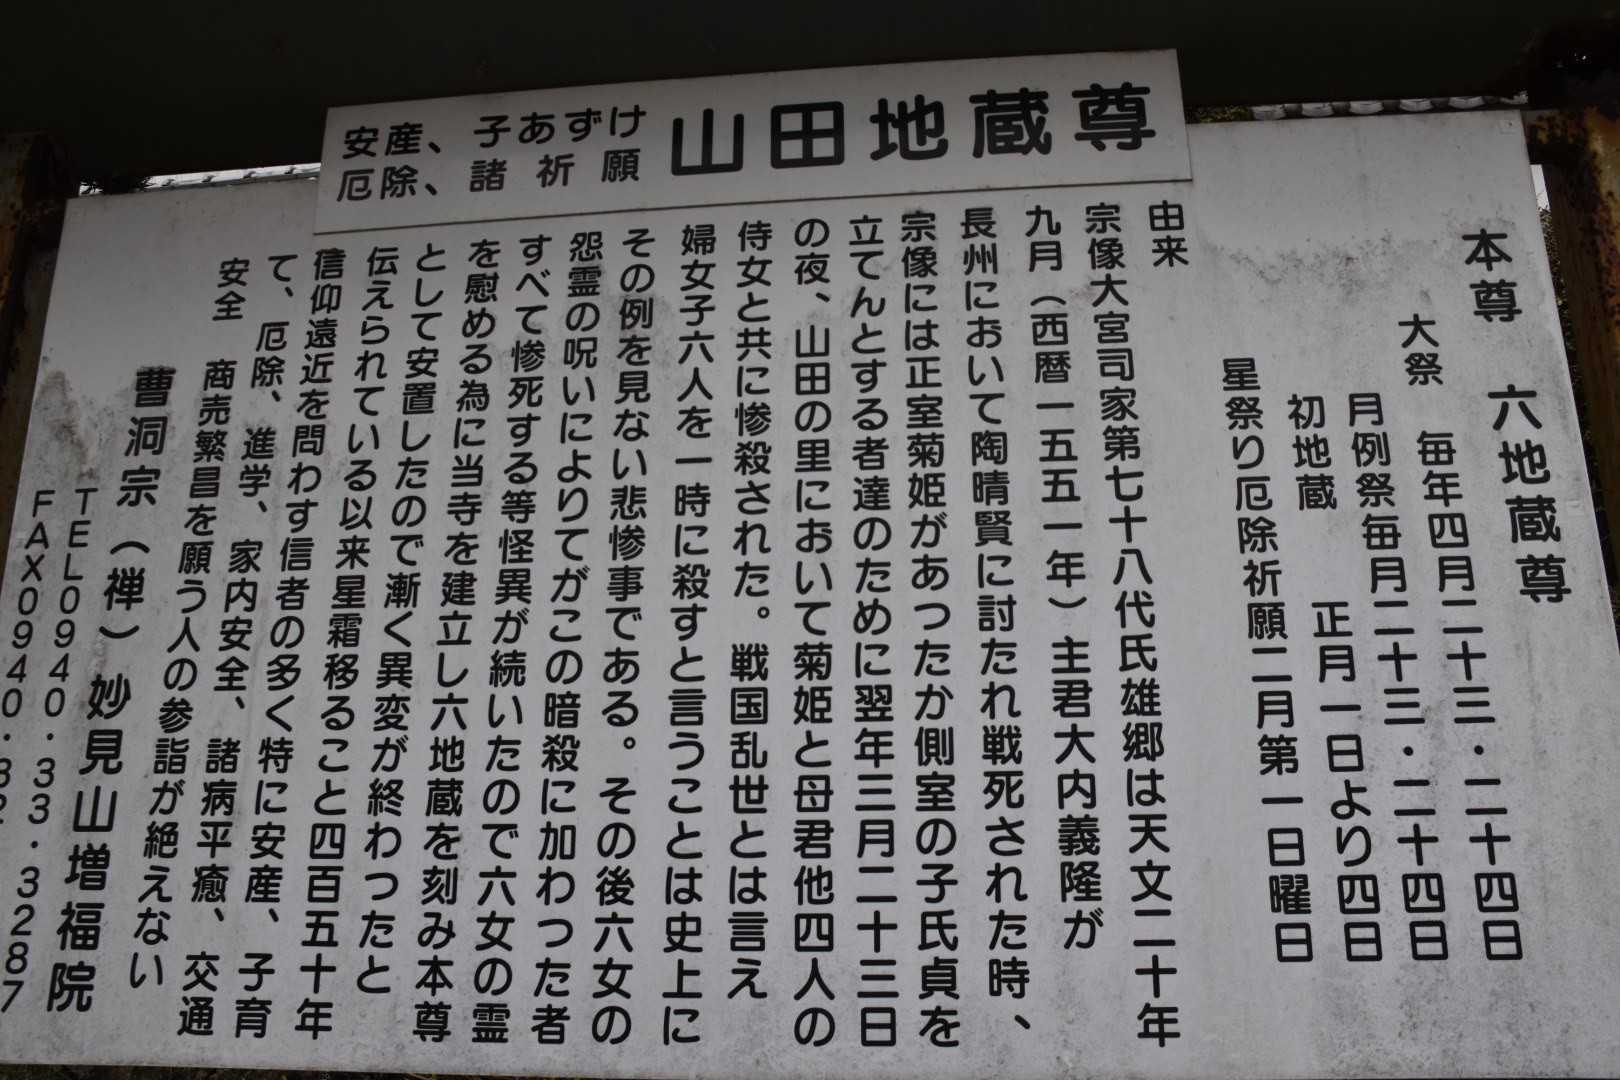 山田地蔵尊
安産、子あずけ
厄除、諸祈願
本尊　六地蔵尊
大祭　毎年四月二十三・二十四日
月例祭毎月二十三・二十四日
初地蔵　正月一日より四日
星祭り厄除祈願二月第一日曜日
由来
宗像大宮司家第七十八代氏雄郷は天文二十年
九月（西暦一五五一年）主君大内義隆が
長州において陶晴賢に討たれ戦死された時、
宗像には正室菊姫があつたか側室の子氏貞を
立てんとする者達のために翌年三月二十三日
の夜、山田の里において菊姫と母君他四人の
侍女と共に惨殺された。戦国乱世とは言え
婦女子六人を一時に殺すと言うことは史上に
その例を見ない悲惨事である。その後六女の
怨霊の呪いによりてがこの暗殺に加わった者
すべて惨死する等怪異が続いたので六女の霊
を慰める為に当寺を建立し六地蔵を刻み本尊
として安置したので漸く異変が終わつたと
伝えられている以来星霜移ること四百五十年
信仰遠近を問わす信者の多く特に安産、子育
て、厄除、進学、家内安全、諸病平癒、交通
安全　商売繁昌を願う人の参詣が絶えない
曹洞宗（禅）妙見山増福院
TEL0940.33.3287
FAX0940.32.